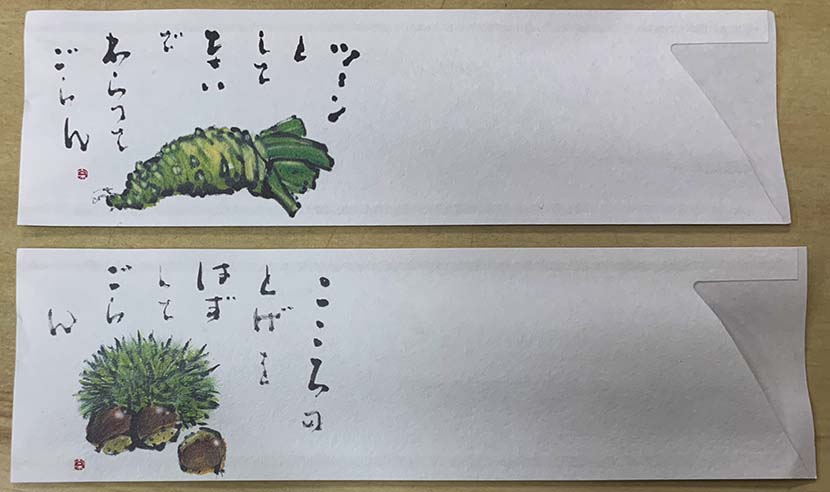 ツーン
と
して
ないで
わらって
ごらん
こころの
とげを
はず
して
ごら
ん